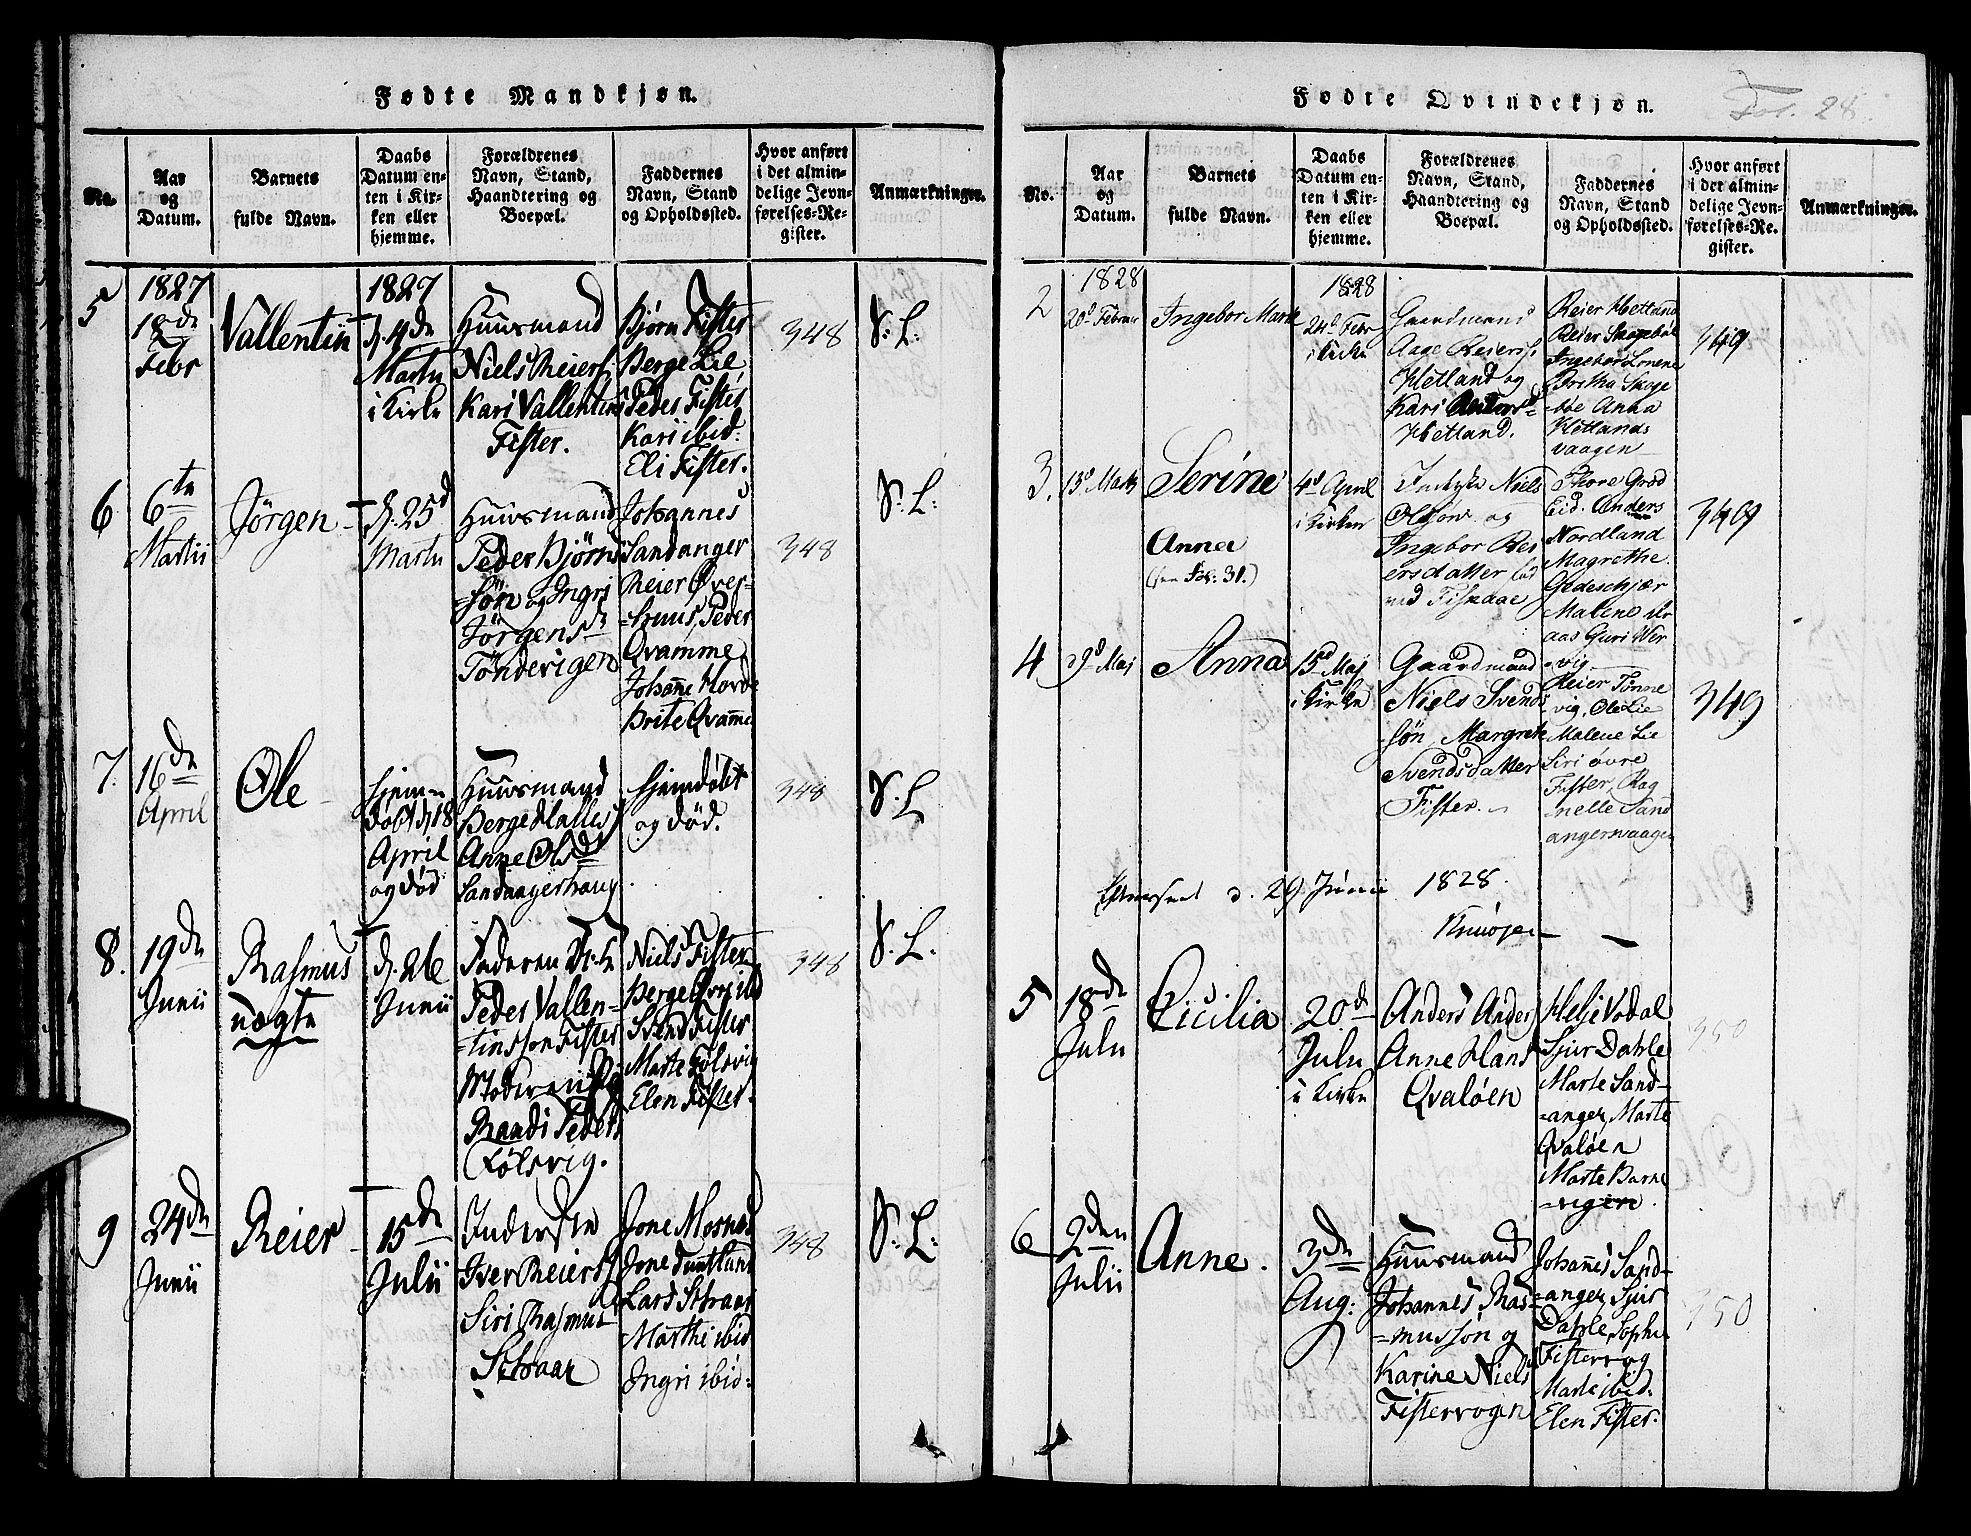 Fødte Mandkjøn.
No.
Aar
og
Datum.
Barnets
fulde Navn.
Daabs
Datum en-
ten i Kir-
ken eller
hjemme.
Forældrenes
Navn, Stand,
Haandtering og
Boepæl.
Faddernes
Navn, Stand
og Opholdssted.
Hvor anført
i det almin-
delige Jevn-
førelses-Re-
gister.
Anmærkninger.
5
1827
18de
Febr
Vallentin
1827
d. 4de
Martii
i Kirke
Huusmand
Niels Reiers
Kari Vallentins
Fister.
Bjørn Fister
Berge Lie
Peder Fister
Kari ibid:
Eli Fister.
348
V. L:
6
6te
Martii
Jörgen
d. 25d
Martii
Huusmand
Peder Bjørn
=søn og Ingri
Jörgensdr
Töndevigen
Johannes
Sandanger
Reier Øver-
=huus, Peder
Qvamme
Johanne Hovde
Brite Qvamme
348
V. L:
7.
16de
April
Ole
Hjem=
døbt d. 18
April
og død
Huusmand
Berge Halles
Anne Olsdr
Sandangerhaug
Hjemdøbt
og død.
348
V. L
8.
19de
Junii
Rasmus
uægte
d. 26
Junii
Faderen
Peder Vallen-
=tinssøn Fister
Moderen Pig
Randi Peders
Følsvig.
Niels Fister
Berge ibid
Svend Fister
Marte Følsvig
Elen Fister.
348
V. L.
9
24de
Junii
Reier
15de
Julii
Inderste
Iver Reiers
Siri Rasmus
Straar
Jone Mosnes
Jone
Lars Straar
Marthe ibid
Ingri ibid:
348
V. L:
Fødte Qvindekjøn.
Fol. 28
No.
Aar
og
Datum.
Barnets
fulde Navn.
Daabs
Datum en-
ten i Kir-
ken eller
hjemme.
Forældrenes
Navn, Stand,
Haandtering og
Boepæl.
Faddernes
Navn, Stand
og Opholdssted.
Hvor anført
i det almin-
delige Jevn-
førelses-Re-
gister.
Anmærkninger.
2
1828
20d Februar
Ingebor Marte
1828
24d Febr
i Kirke
Gaardmand
Aage Reiers.
Hetland og
Kari Anders=
Hetland.
Reier Hetland
Reier Skogeböe
Ingebor Lorene
Britha Skoge
-böe Anna
Hetlands
vaagen
349
3.
13d Marts
Serine
Anna
(see Fol: 31.)
4d April
i Kirken
Niels
Olson og
Ingebor Rei
ersdatter
ved Fiskaae
Thore Grød
Eid. Anders
Nordland
Magrethe
Gedeschjær
Malene
aas Guri Wer
-vig
349
4
9d Maj
Anna
15d Maj
i Kirke
Gaardmand
Niels Svends
-søn Margrete
Svendsdatter
Fister.
Reier Tønne
vig, Ole Lie
Malene Lie
Siri övre
Fister Rag
nelle Sand
angervaagen
349
d. 29 Junii 1828.
5
18de
Julii
Cicilia
20d
Julii
i Kirke
Anders Anders
Anne Hans
Qvaløen
Helje Vadal
Sjur Dahle
Marte Sand-
=anger, Marte
Qvaløen
Marte Barne
=vigen.
350
6
2den
Julii
Anne.
3de
Aug:
Huusmand
Johannes Ras-
=mussøn og
Karine Niels
Fistervogen
Johannes Sand-
=anger, Sjur
Dahle, Sophi
Fistervog
Marte ibid:
Elen Fister.
350